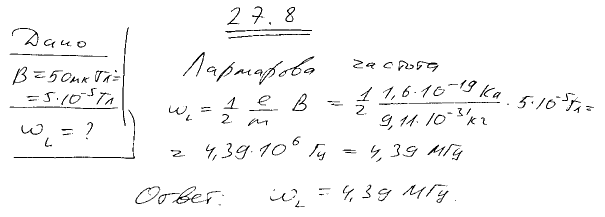 27.8
Дано
B = 50 мк Тл =
= 5·10⁻⁵ Тл
ω_L = ?
Лармарова частота
ω_L = 1/2 e/m B = 1/2 1,6·10⁻¹⁹ Кл / 9,11·10⁻³¹ кг · 5·10⁻⁵ Тл =
= 4,39·10⁶ Гц = 4,39 МГц
Ответ: ω_L = 4,39 МГц.